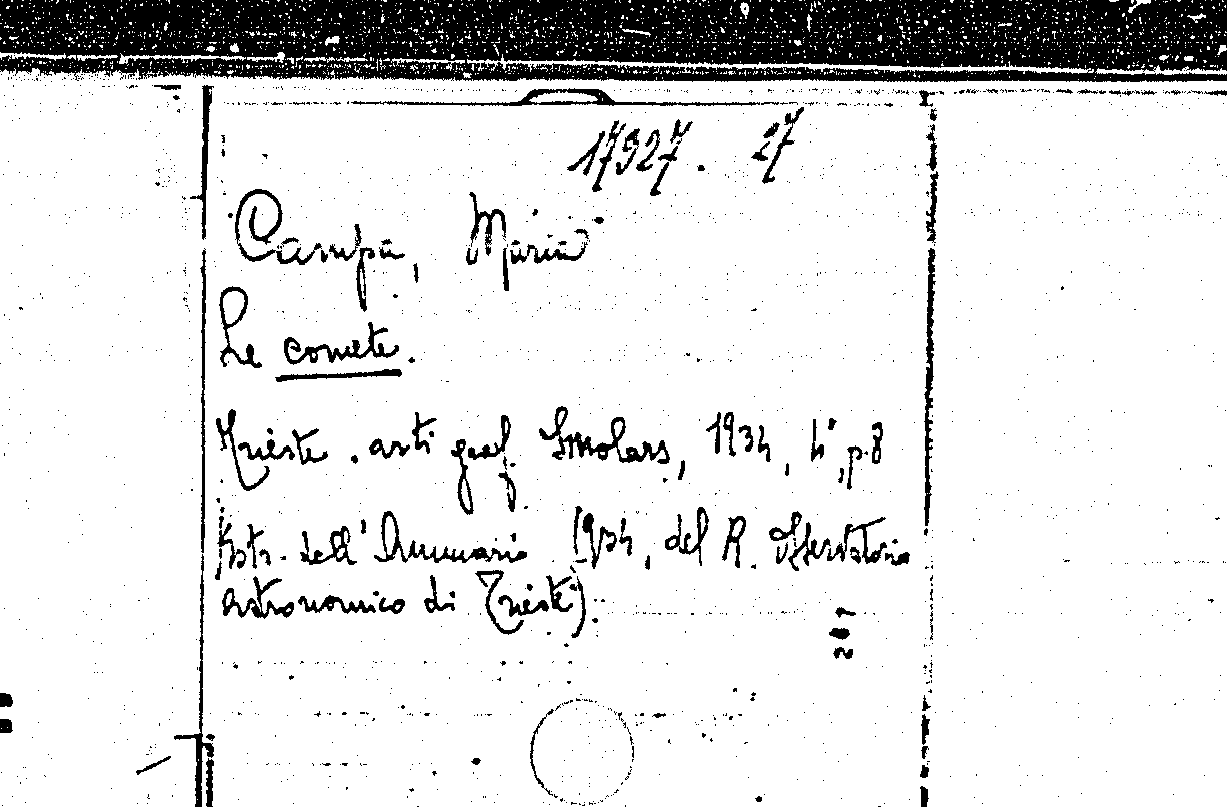 17927. 27
Campa, Maria
Le comete.
Trieste. arti graf. Smolars, 1934, 4°, p. 8
Estr. dell' Annuario 1934, del R. Osservatorio
astronomico di Trieste).